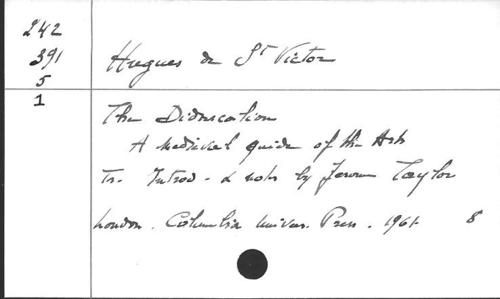 242
391
5
1
Hugues de St Victor
The Didascalion
A medieval guide of the Arts
Tr. Introd. & notes by Jerome Taylor
London. Columbia Univer. Press. 1961 8